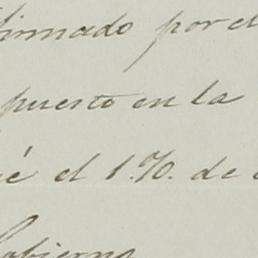 firmado por el
puesto en la
é el 1.% de
Gobierno